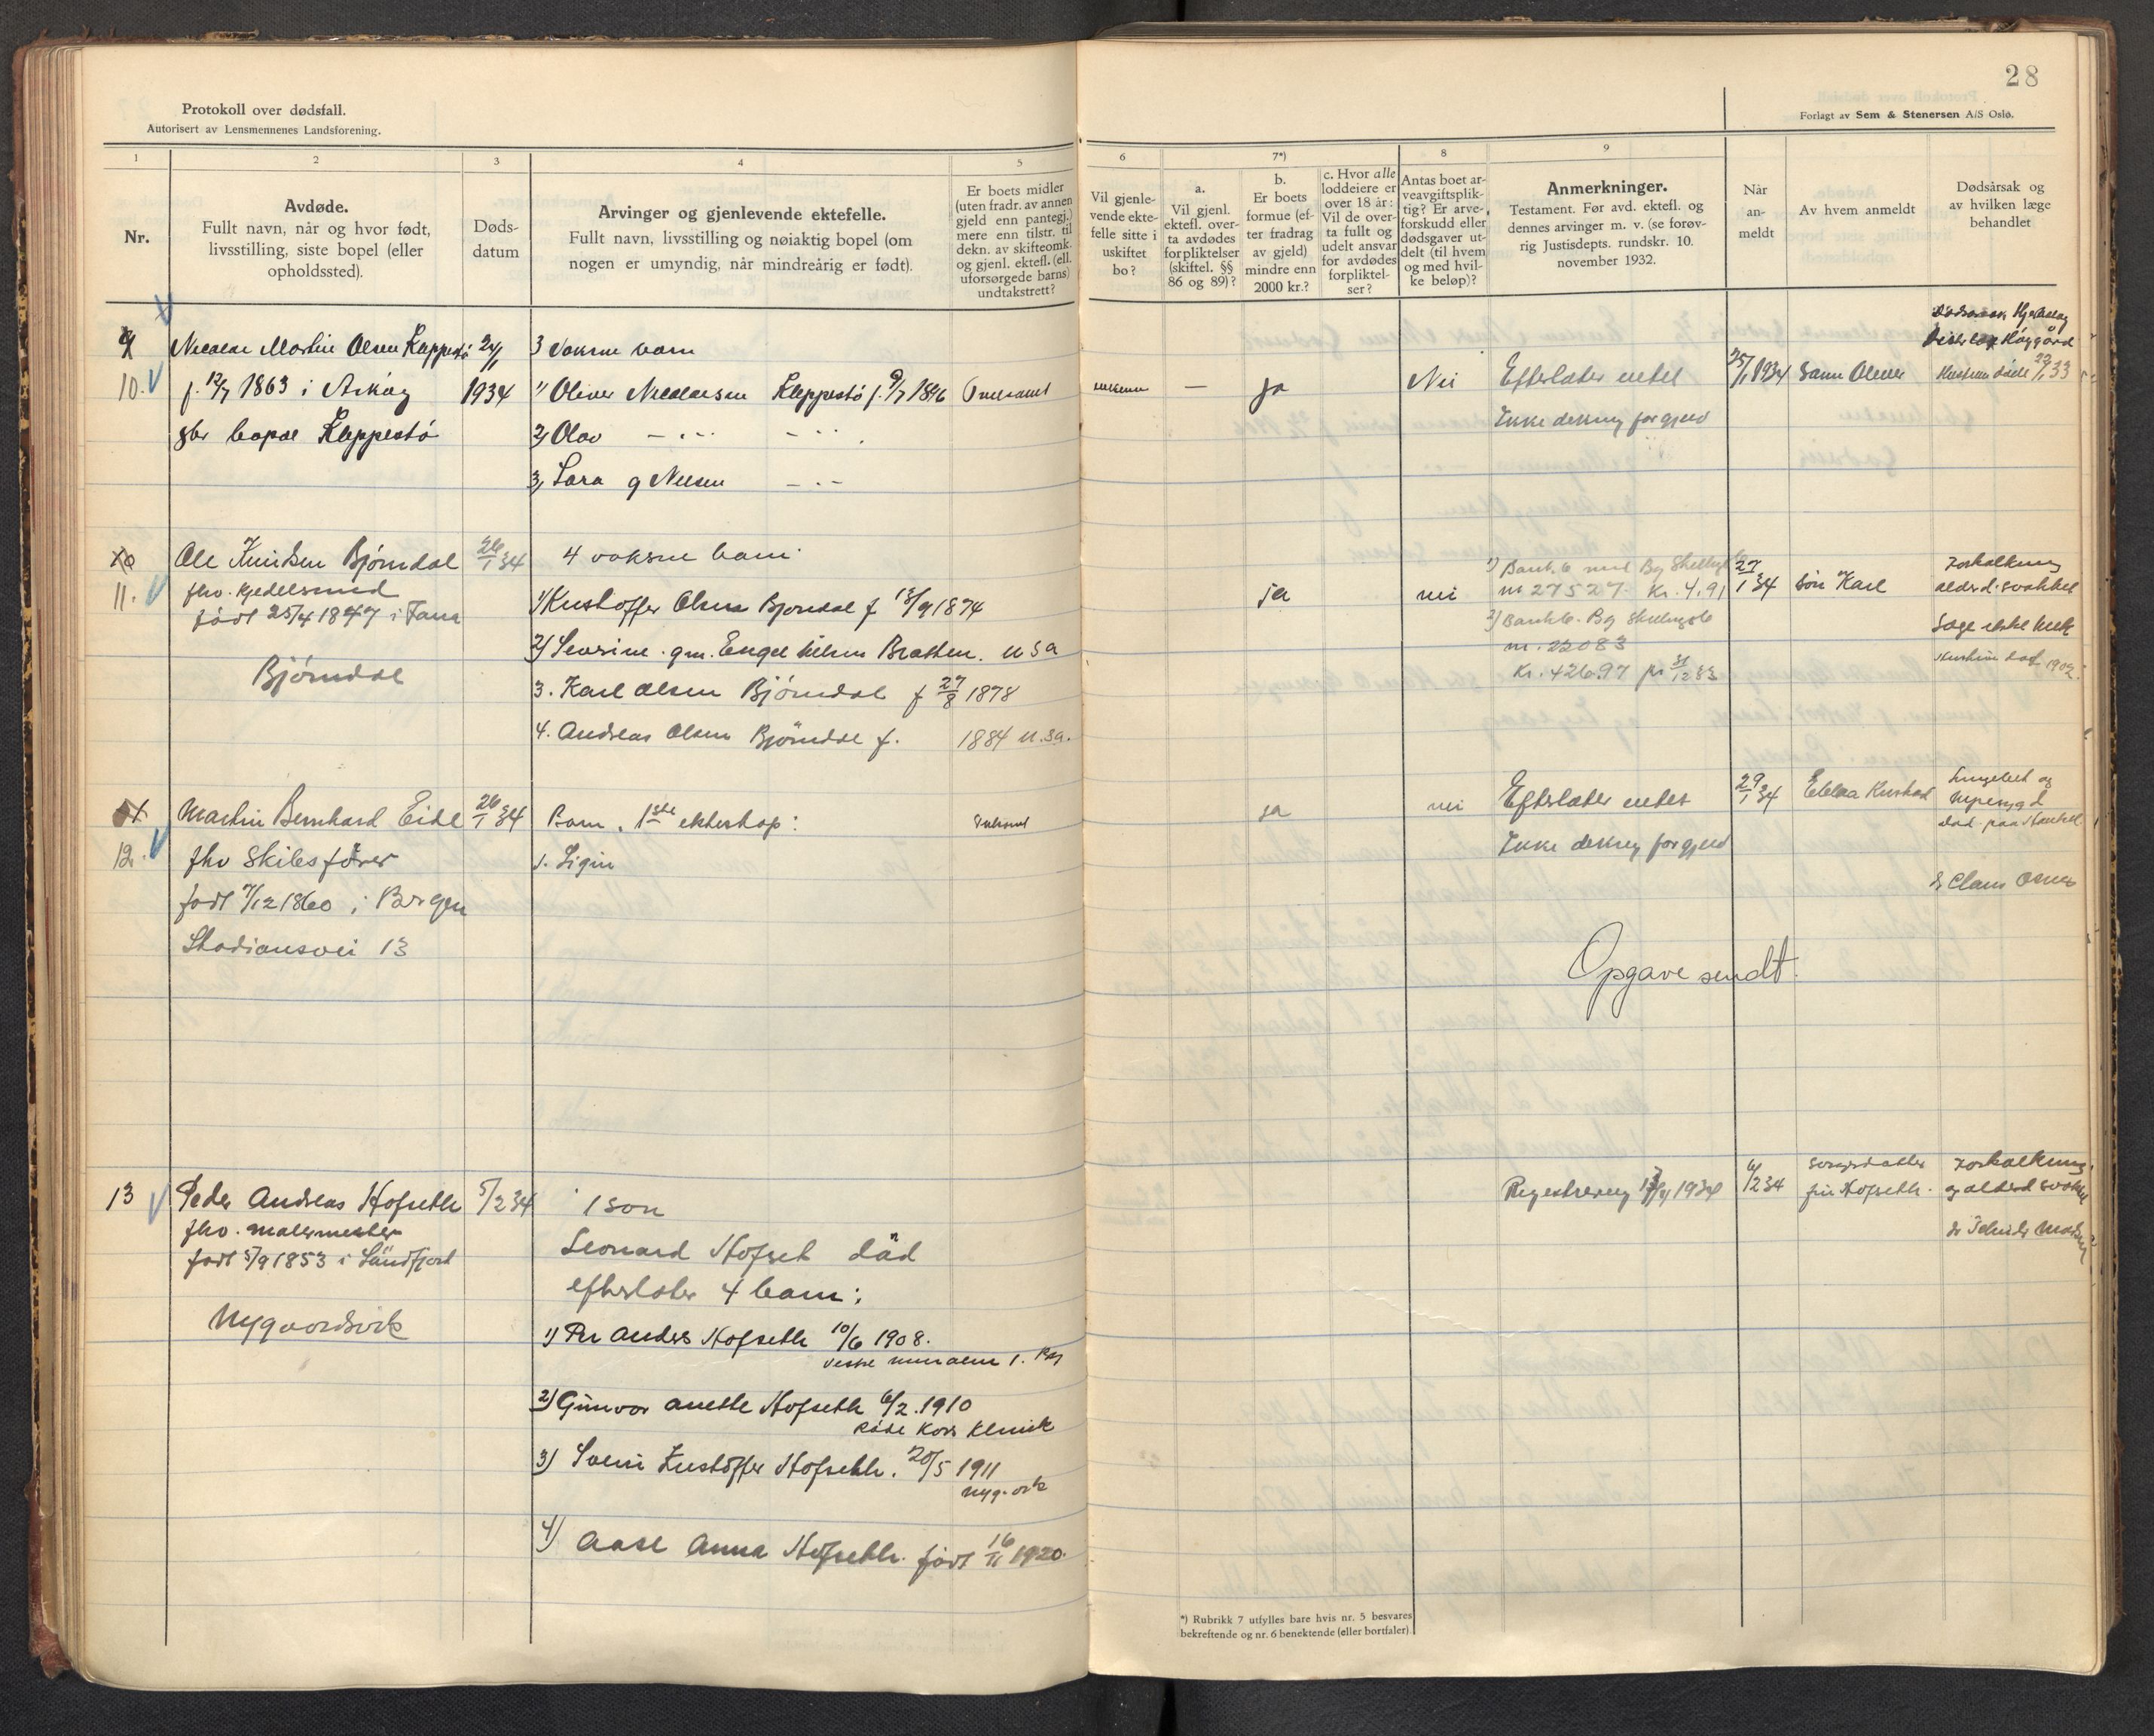 28
Protokoll over dødsfall.
Autorisert av Lensmennenes Landsforening.
Forlagt av Sem & Stenersen A/S Oslo.
1
2
3
4
5
6
7*)
8
9
Nr.
Avdøde.
Fullt navn, når og hvor født,
livsstilling, siste bopel (eller
opholdssted).
Døds-
datum
Arvinger og gjenlevende ektefelle.
Fullt navn, livsstilling og nøiaktig bopel (om
nogen er umyndig, når mindreårig er født).
Er boets midler
(uten fradr. av annen
gjeld enn pantegj.)
mere enn tilstr. til
dekn. av skifteomk.
og gjenl. ektefl. (ell.
uforsørgede barns)
undtakstrett?
Vil gjenle-
vende ekte-
felle sitte i
uskiftet
bo?
a.
Vil gjenl.
ektefl. over-
ta avdødes
forpliktelser
(skiftel. §§
86 og 89)?
b.
Er boets
formue (ef-
ter fradrag
av gjeld)
mindre enn
2000 kr.?
c. Hvor alle
loddeiere er
over 18 år:
Vil de over-
ta fullt og
udelt ansvar
for avdødes
forpliktel-
ser?
Antas boet ar-
veavgiftsplik-
tig? Er arve-
forskudd eller
dødsgaver ut-
delt (til hvem
og med hvil-
ke beløp)?
Anmerkninger.
Testament. Før avd. ektefl. og
dennes arvinger m. v. (se forøv-
rig Justisdepts. rundskr. 10.
november 1932.
Når
an-
meldt
Av hvem anmeldt
Dødsårsak og
av hvilken læge
behandlet
9
10.
Martin Olsen Kleppestø
f. 12/7 1863 i Askøy
bopæl Kleppestø
24/1
1934
3 voksne barn
1) Oliver Kleppestø f. 9/7 1896
2) Olav
3) Lara g Nilsen
—
ja
Nei
Efterlater intet
Ikke dekning for gjeld
25/1 1934
Sønn Oliver
døde 33
10
11.
Ole Knudsen Bjørndal
fhv. Gjedelsmed
født 25/4 1847 i Fana
Bjørndal
26/1 34
4 voksne barn
1) Kristoffer Olsen Bjørndal f 18/9 1874
2) Severine gm. Engel Bratten. USA
3. Karl Olsen Bjørndal f 27/8 1878
4. Andreas Olsen Bjørndal f. 1884 U.S.A.
ja
nei
1) Bankb. med Bg
nr 27527 kr. 4.91
2) Bankb. Bg
nr. 22083
Kr. 426.97 pr 31/12 33
27/1 34
søn Karl
Forkalkning
alderd. svakhet
Læge ikke
død 1902
11
12.
Martin Bernhard Eide
fhv Skibsfører
født 7/12 1860 i Bergen
13
26/1 34
Barn. 1ste ekteskap:
1. Sigin
ja
nei
Efterlater intet
Ikke dekning for gjeld
29/1 34
og
dr Claus
Opgave sendt.
13
Peder Andreas Hofseth
fhv. malermester
født 5/9 1853 i Søndfjord
Nygaardsvik
5/2 34
1 søn
Leonard Hofset død
efterlater 4 barn:
1) Per Anders Hofseth 10/6 1908.
2) Gunvor Anette Hofseth 6/2. 1910
Røde Kors Klinik
3) Svein Kristoffer Hofseth. 20/5 1911
4) Aase Anna Hofseth. født 16/11 1920.
Registrering 1934
6/2 34
svigerdatter
fru Hofseth.
Forkalkning
og alderd svakhet
*) Rubrikk 7 utfylles bare hvis nr. 5 besvares
bekreftende og nr. 6 benektende (eller bortfaler).